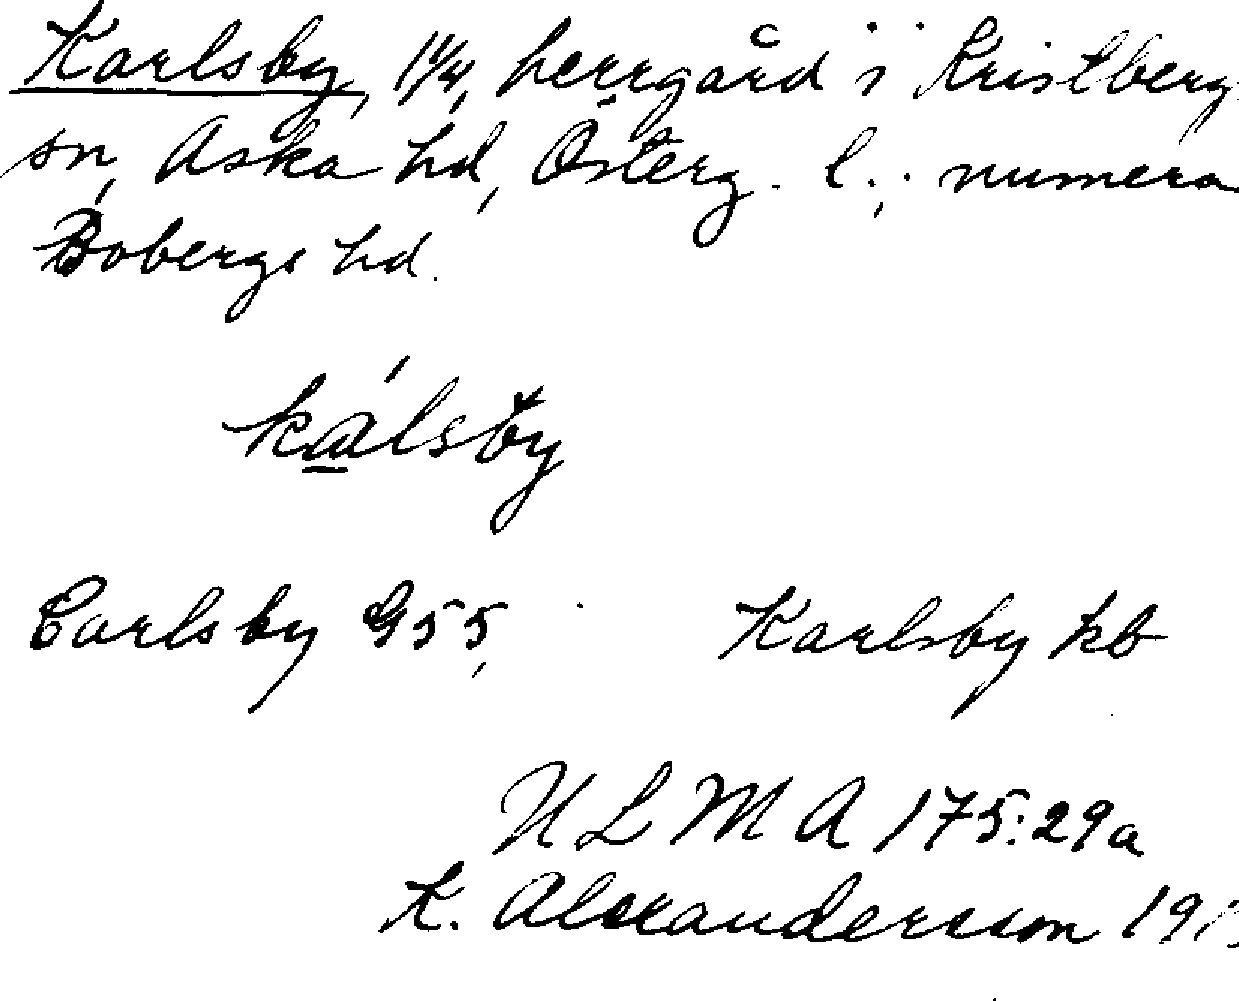 Karlsby, 1 1/4, herrgård i Kristberg
sn, Aska hd, Österg. l.; numera
Bobergs hd.
kálsby
Carlsby G55,
Karlsby kb
ULMA 175:29a
K. Alexandersson